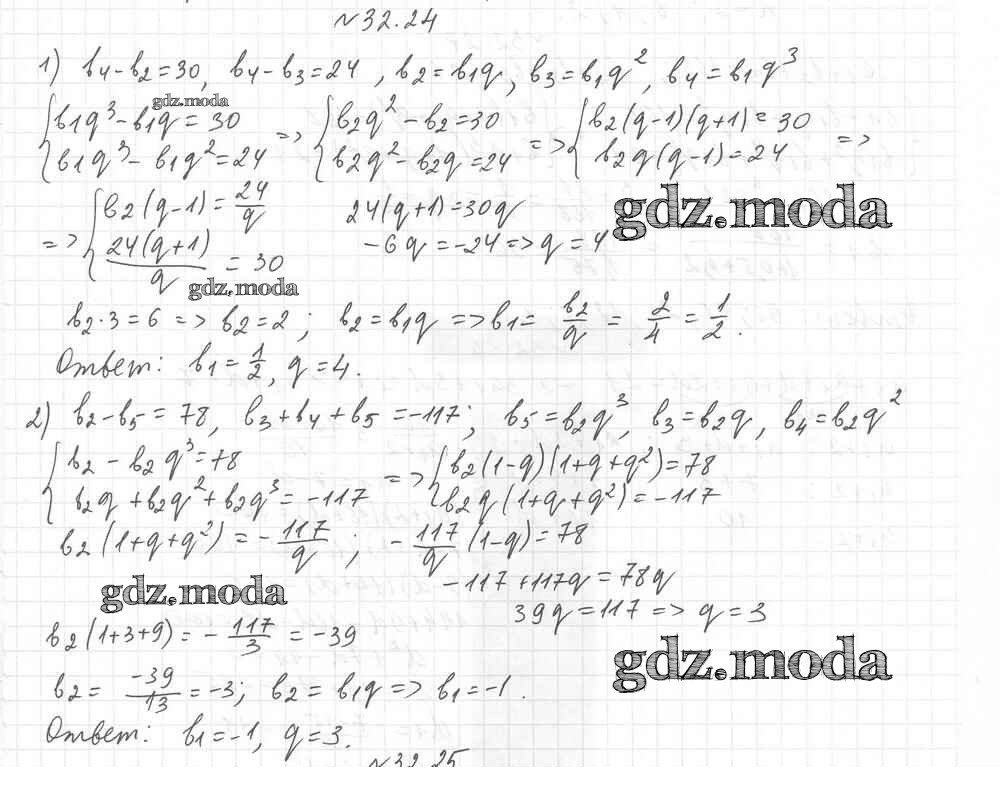 №32.24
1) b₄-b₂=30, b₄-b₃=24, b₂=b₁q, b₃=b₁q², b₄=b₁q³
gdz.moda
{b₁q³-b₁q=30 => {b₂q²-b₂=30 => {b₂(q-1)(q+1)=30 =>
{b₁q³-b₁q²=24 {b₂q²-b₂q=24 {b₂q(q-1)=24
gdz.moda
=> {b₂(q-1)=24/q 24(q+1)=30q
{24(q+1)/q=30 -6q=-24=>q=4
gdz.moda
b₂·3=6=>b₂=2; b₂=b₁q=>b₁=b₂/q=2/4=1/2.
Ответ: b₁=1/2, q=4.
2) b₂-b₅=78, b₃+b₄+b₅=-117; b₅=b₂q³, b₃=b₂q, b₄=b₂q²
{b₂-b₂q³=78 => {b₂(1-q)(1+q+q²)=78
{b₂q+b₂q²+b₂q³=-117 {b₂q(1+q+q²)=-117
b₂(1+q+q²)=-117/q; -117/q(1-q)=78
gdz.moda
-117+117q=78q
39q=117=>q=3
b₂(1+3+9)=-117/3=-39
gdz.moda
b₂=-39/13=-3; b₂=b₁q=>b₁=-1.
Ответ: b₁=-1, q=3.
№32.25